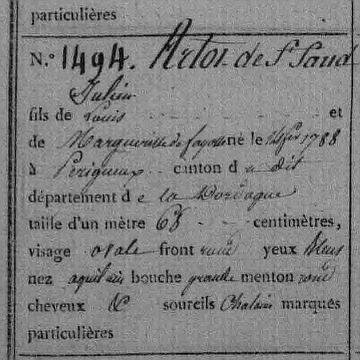 particulières
N.° 1494. Artos de St Saud
Julien
fils de Louis et
de Marguerite de fayolle né le 14 fév 1788
à Périgueux canton d u dit
département d e la Dordogne
taille d'un mètre 68 centimètres,
visage ovale front rond yeux bleus
nez aquilin bouche grande menton rond
cheveux & sourcils Chatain marques
particulières